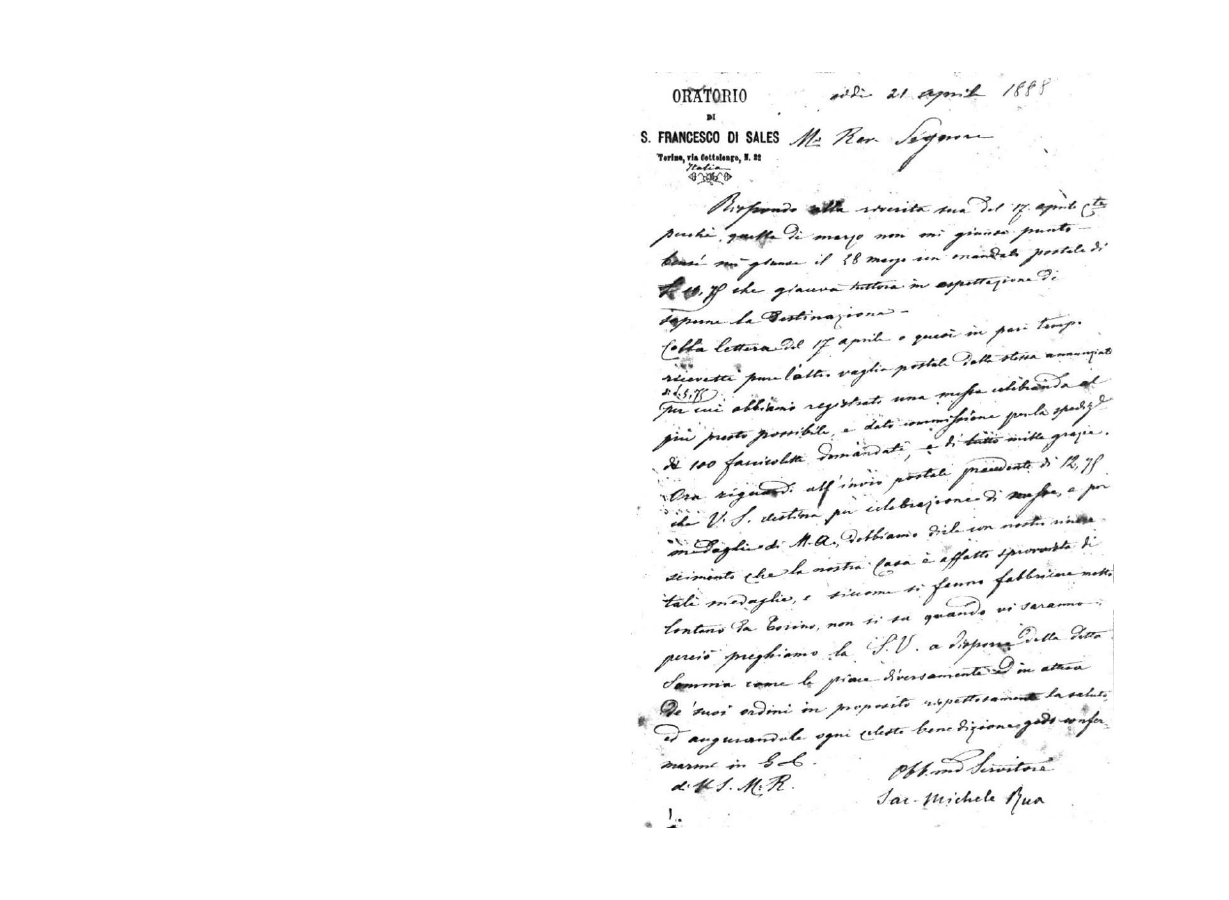 ORATORIO
DI
S. FRANCESCO DI SALES
Torino, via Cottolengo, N. 32
Italia
addì 21 aprile 1888
M. Rev. Signore
Rispondo alla riverita sua del 17 aprile
perchè quella di marzo non mi giunse punto
bensì mi giunse il 28 marzo un mandato postale di
che giaceva tuttora in aspettazione di
saperne la destinazione -
Colla lettera del 17 aprile o quasi in pari tempo
ricevetti pure l'altro vaglia postale dalla stessa annunziato
di L. 5,75
per cui abbiamo registrato una messa celebranda al
più presto possibile, e dato commissione per la
di 100 demandati, e di tutto mille grazie.
Ora riguardo all'invio postale precedente di 12,75
che V. S. destina per celebrazione di messe, e per
medaglie di M. A., debbiamo dirle con nostro rincre
scimento che la nostra Casa è affatto sprovvista di
tali medaglie, e siccome si fanno fabbricare molto
lontano da Torino, non si sa quando vi saranno;
perciò preghiamo la S. V. a disporre della detta
Somma come le piace diversamente ed in attesa
de' suoi ordini in proposito rispettosamente la saluto
ed augurandole ogni celeste benedizione godo confer-
marmi in G. C.
di V. S. M. R.
Obb.mo Servitore
Sac. Michele Rua